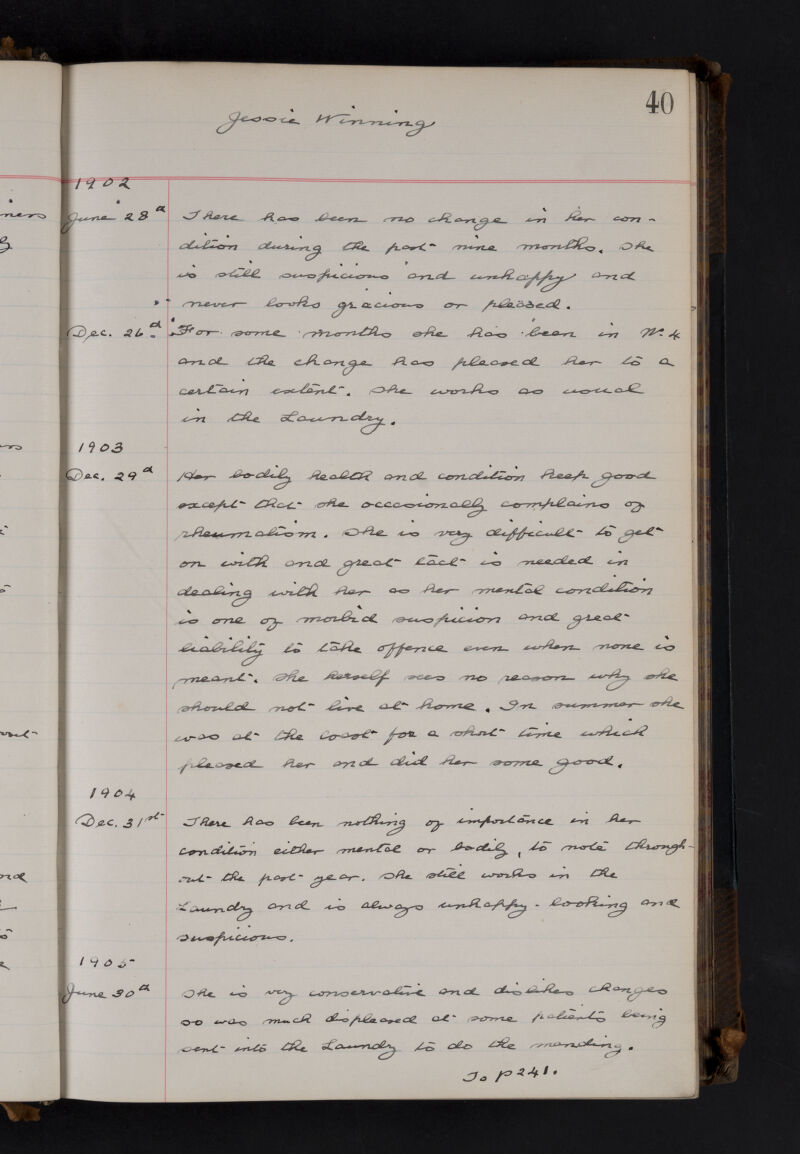 40
Jessie Winning
1902
June 28th There has been no change in her con-
dition during the past nine months. She
is still suspicious and unhappy and
never looks gracious or pleased.
Dec. 26th For some months she has been in W. 4
and the change has pleased her to a
certain extent. She works as usual
in the Laundry.
1903
Dec. 29th Her bodily health and condition keep good
except that she occasionally complains of
rheumatism. She is very difficult to get
on with and great tact is needed in
dealing with her as her mental condition
is one of morbid suspicion and great
liability to take offence even when none is
meant. She herself sees no reason why she
should not live at home. In summer she
was at the coast for a short time which
pleased her and did her some good.
1904
Dec. 31st There has been nothing of importance in her
condition either mental or bodily, to note through-
out the past year. She still works in the
Laundry and is always unhappy-looking and
suspicious.
1905
June 30th She is very conservative and dislikes changes
so was much displeased at some patients being
sent into the Laundry to do the mending.
To p 241.